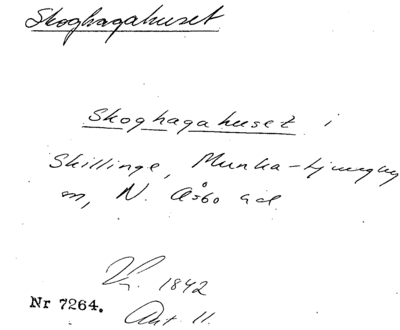 Skoghagahuset
Skoghagahuset i
Skillinge, Munka-Ljungby
sn, N. Åsbo hd.
1842
Nr 7264.
Ant. 11.